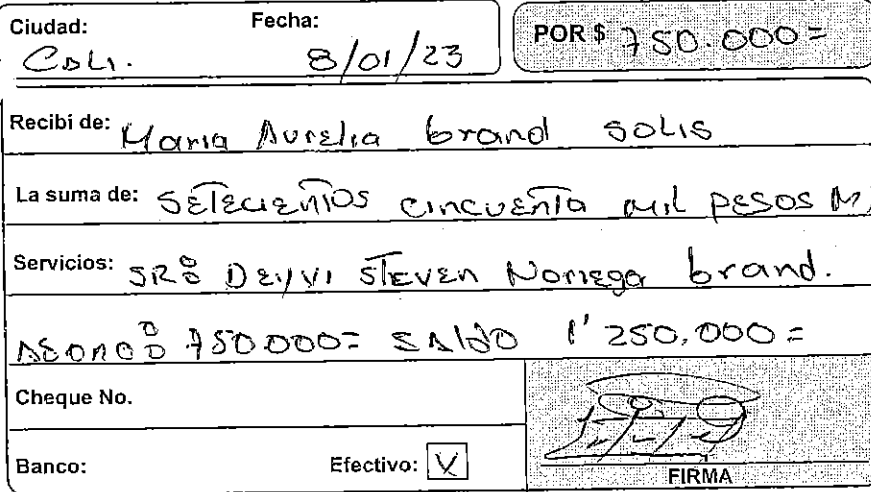 Ciudad: Fecha: POR $ 750.000=
Cali. 8/01/23
Recibí de: Maria Aurelia brand solis
La suma de: Setecientos cincuenta mil pesos M/
Servicios: SR: Deyvi Steven Noriega brand.
Abono: 750.000= Saldo 1'250.000=
Cheque No.
Banco: Efectivo: X
FIRMA